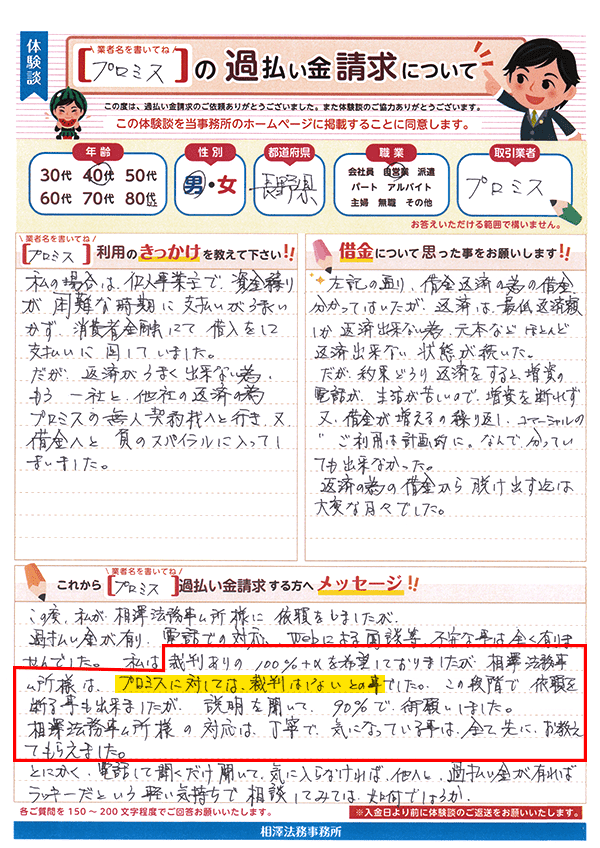 体験談
業者名を書いてね
[プロミス]の過払い金請求について
この度は、過払い金請求のご依頼ありがとうございました。また体験談のご協力ありがとうございます。
この体験談を当事務所のホームページに掲載することに同意します。
年齢
30代 40代 50代
60代 70代 80代
性別
男・女
都道府県
長野県
職業
会社員 自営業 派遣
パート アルバイト
主婦 無職 その他
取引業者
プロミス
お答えいただける範囲で構いません。
業者名を書いてね
[プロミス]利用のきっかけを教えて下さい!!
私の場合は、個人事業主で、資金繰り
が困難な時期に支払いがうまくい
かず、消費者金融にて借入をして
支払いに回していました。
だが、返済がうまく出来ない為、
もう一社と他社の返済の為
プロミスの無人契約機へと行き、又
借金へと負のスパイラルに入ってし
まいました。
借金について思った事をお願いします!!
左記の通り、借金返済の為の借金
分かってはいたが、返済は、最低返済額
しか返済出来ない為、元本などほとんど
返済出来ない状態が続いた。
だが、約束どうり返済をすると、増資の
電話が、生活が苦しいので、増資を断れず
又、借金が増えるの繰り返し、コマーシャルの
"ご利用は計画的に。なんで、分ってい
ても出来なかった。
返済の為の借金から脱け出す迄は
大変な日々でした。
業者名を書いてね
これから[プロミス]過払い金請求する方へメッセージ!!
この度、私が相澤法務事ム所様に依頼をしましたが、
過払い金が有り、電話での対応、Webによる面談等、不安な事は全く有りま
せんでした。私は、裁判ありの100%+αを希望しておりましたが、相澤法務事
ム所様は、プロミスに対しては、裁判はしないとの事でした。この段階で依頼を
断る事も出来ましたが、説明を聞いて、90%で御願いしました。
相澤法務事ム所様の対応は、丁寧で、気になっている事は、全て先に、お教え
てもらえました。
とにかく、電話して聞くだけ聞いて、気に入らなければ、他人と、過払い金が有れば
ラッキーだという軽い気持ちで相談してみては、如何でしょうか。
各ご質問を150〜200文字程度でご回答お願いいたします。
※入金日より前に体験談のご返送をお願いいたします。
相澤法務事務所